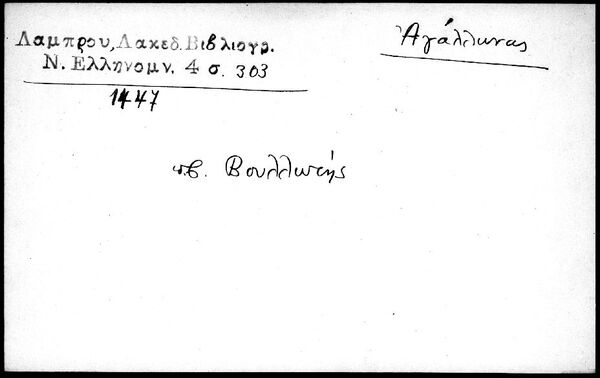 Λαμπρου, Λακεδ. Βιβλιογρ.
Ν. Ελληνομν. 4 σ. 303
1447
Ἀγάλλωνας
πβ. Βουλλωτής